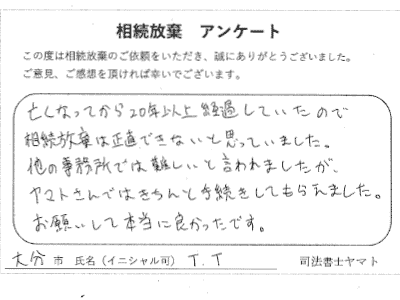 相続放棄　アンケート
この度は相続放棄のご依頼をいただき、誠にありがとうございました。
ご意見、ご感想を頂ければ幸いでございます。
亡くなってから20年以上経過していたので
相続放棄は正直できないと思っていました。
他の事務所では難しいと言われましたが、
ヤマトさんではきちんと手続きしてもらえました。
お願いして本当に良かったです。
大分 市　氏名（イニシャル可）　T.T　司法書士ヤマト